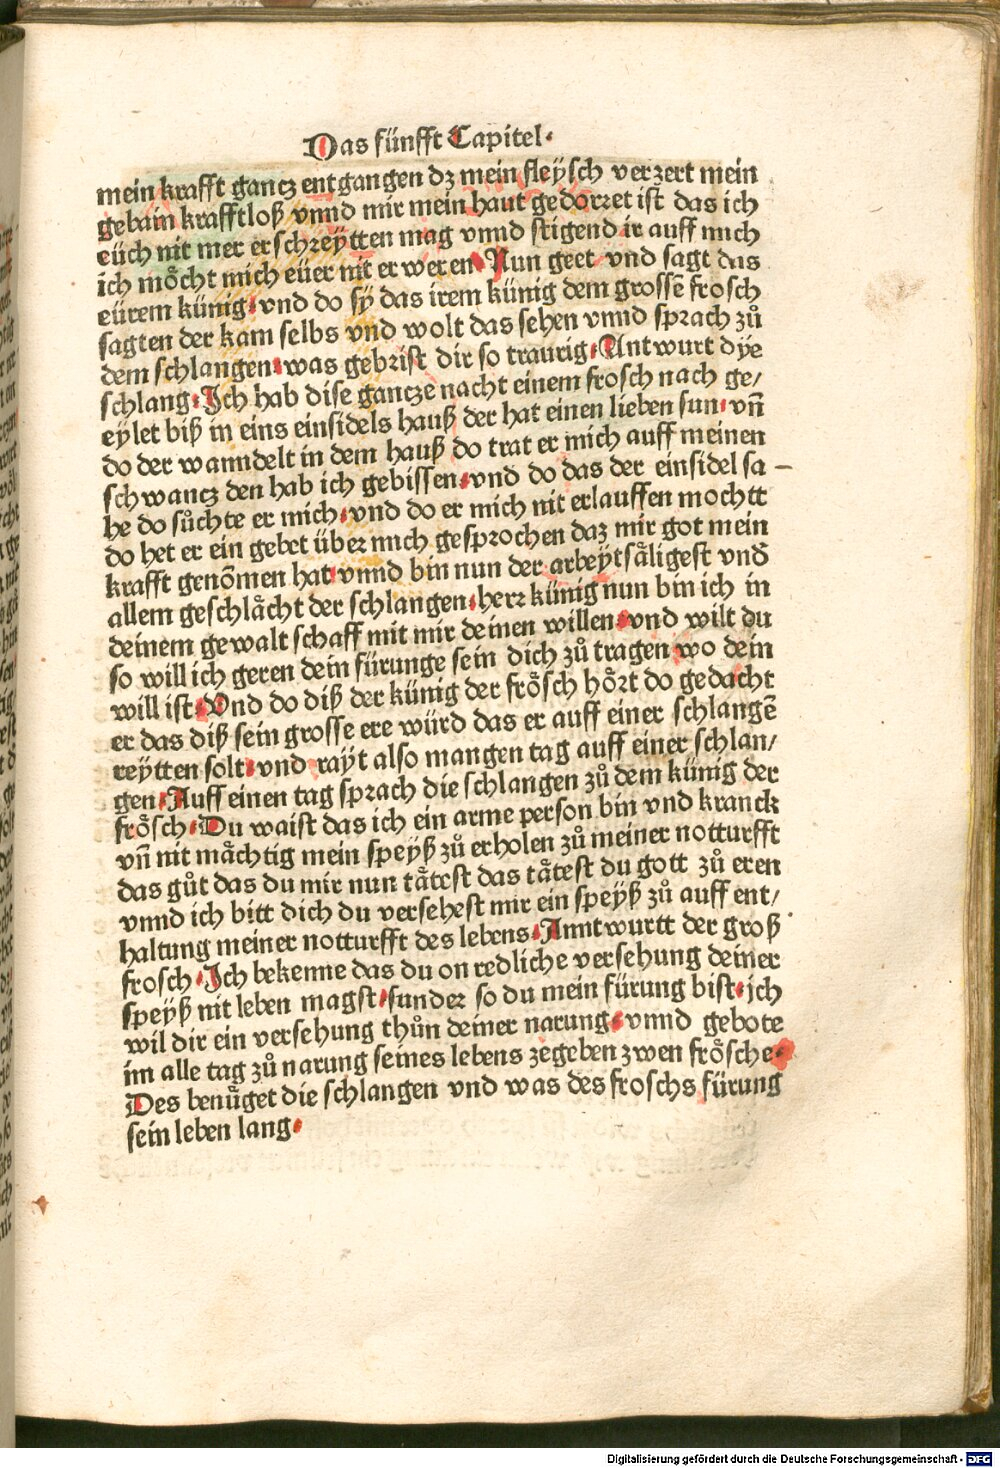 Das fünfft Capitel·
mein krafft gancz entgangen dz mein fleysch verzert mein
gebain krafftloß vnnd mir mein haut gedorret ist das ich
eüch nit mer erschreÿtten mag vnnd stigend ir auff mich
ich mo̊cht mich eüer nit erweren Nun geet vnd sagt das
eürem künig·vnd do sÿ das irem künig dem grossē frosch
sagten der kam selbs vnd wolt das sehen vnnd sprach zů
dem schlangen·was gebrist dir so traurig·Antwurt dÿe
schlang·Ich hab dise gancze nacht einem frosch nach ge/
eÿlet biß in eins einsidels hauß der hat einen lieben sun·vn̄
do der wanndelt in dem hauß do trat er mich auff meinen
schwancz den hab ich gebissen·vnd do das der einsidel sa-
he do sůchte er mich·vnd do er mich nit erlauffen mochtt
do het er ein gebet über mich gesprochen daz mir got mein
krafft genōmen hat·vnnd bin nun der arbeÿtsäligest vnd̄
allem geschlächt der schlangen·herr künig nun bin ich in
deinem gewalt schaff mit mir deinen willen·vnd wilt du
so will ich geren dein fürunge sein dich zů tragen wo dein
will ist·Vnd do diß der künig der frösch hört do gedacht
er das diß sein grosse ere würd das er auff einer schlangē
reÿtten solt·vnd raÿt also mangen tag auff einer schlan/
gen·Auff einen tag sprach die schlangen zů dem künig der
frösch·Du waist das ich ein arme person bin vnd kranck
vn̄ nit mächtig mein speÿß zů erholen zů meiner notturfft
das gůt das du mir nun tätest das tätest du gott zů eren
vnnd ich bitt dich du versehest mir ein speÿß zů auff ent/
haltung meiner notturfft des lebens·Anntwurtt der groß
frosch·Ich bekenne das du on redliche versehung deiner
speÿß nit leben magst·sunder so du mein fürung bist·ich
wil dir ein versehung thůn deiner narung·vnnd gebote
im alle tag zů narung seines lebens zegeben zwen frösche·
Des benüget die schlangen vnd was des froschs fürung
sein leben lang·
Digitalisierung gefördert durch die Deutsche Forschungsgemeinschaft - DFG